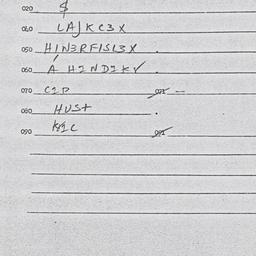 020 $
060 LAJKC3X
050 HINERFISL3X .
060 A HINDIKV
070 CIP
080 HUST .
090 KIC